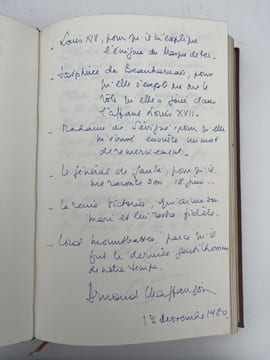 - Louis XIV, pour qu'il m'explique
l'énigme du Masque de fer.
- Joséphine de Beauharnais, pour
qu'elle s'explique sur le
rôle qu'elle a joué dans
l'affaire Louis XVII.
- Madame de Sévigné pour qu'elle
m'envoie ensuite un mot
de remerciement.
- Le général de Gaulle, pour qu'il
me raconte son 18 juin...
- La reine Victoria, qui aima son
mari et lui resta fidèle.
- Lord Mountbatten, parce qu'il
fut le dernier gentilhomme
de notre temps.
Armand Chaffanjon
1er décembre 1980